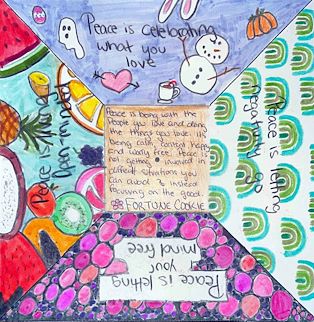 Peace is celebrating
what you
love
Peace is being
Open-minded
Peace is being with the
People you love and doing
the things you love. It's
being calm, content happy
and worry free. Peace is
not getting involved in
different situations you
can avoid & instead
focussing on the good.
FORTUNE COOKIE
Peace is letting
negativity go
Peace is letting
your
mind free